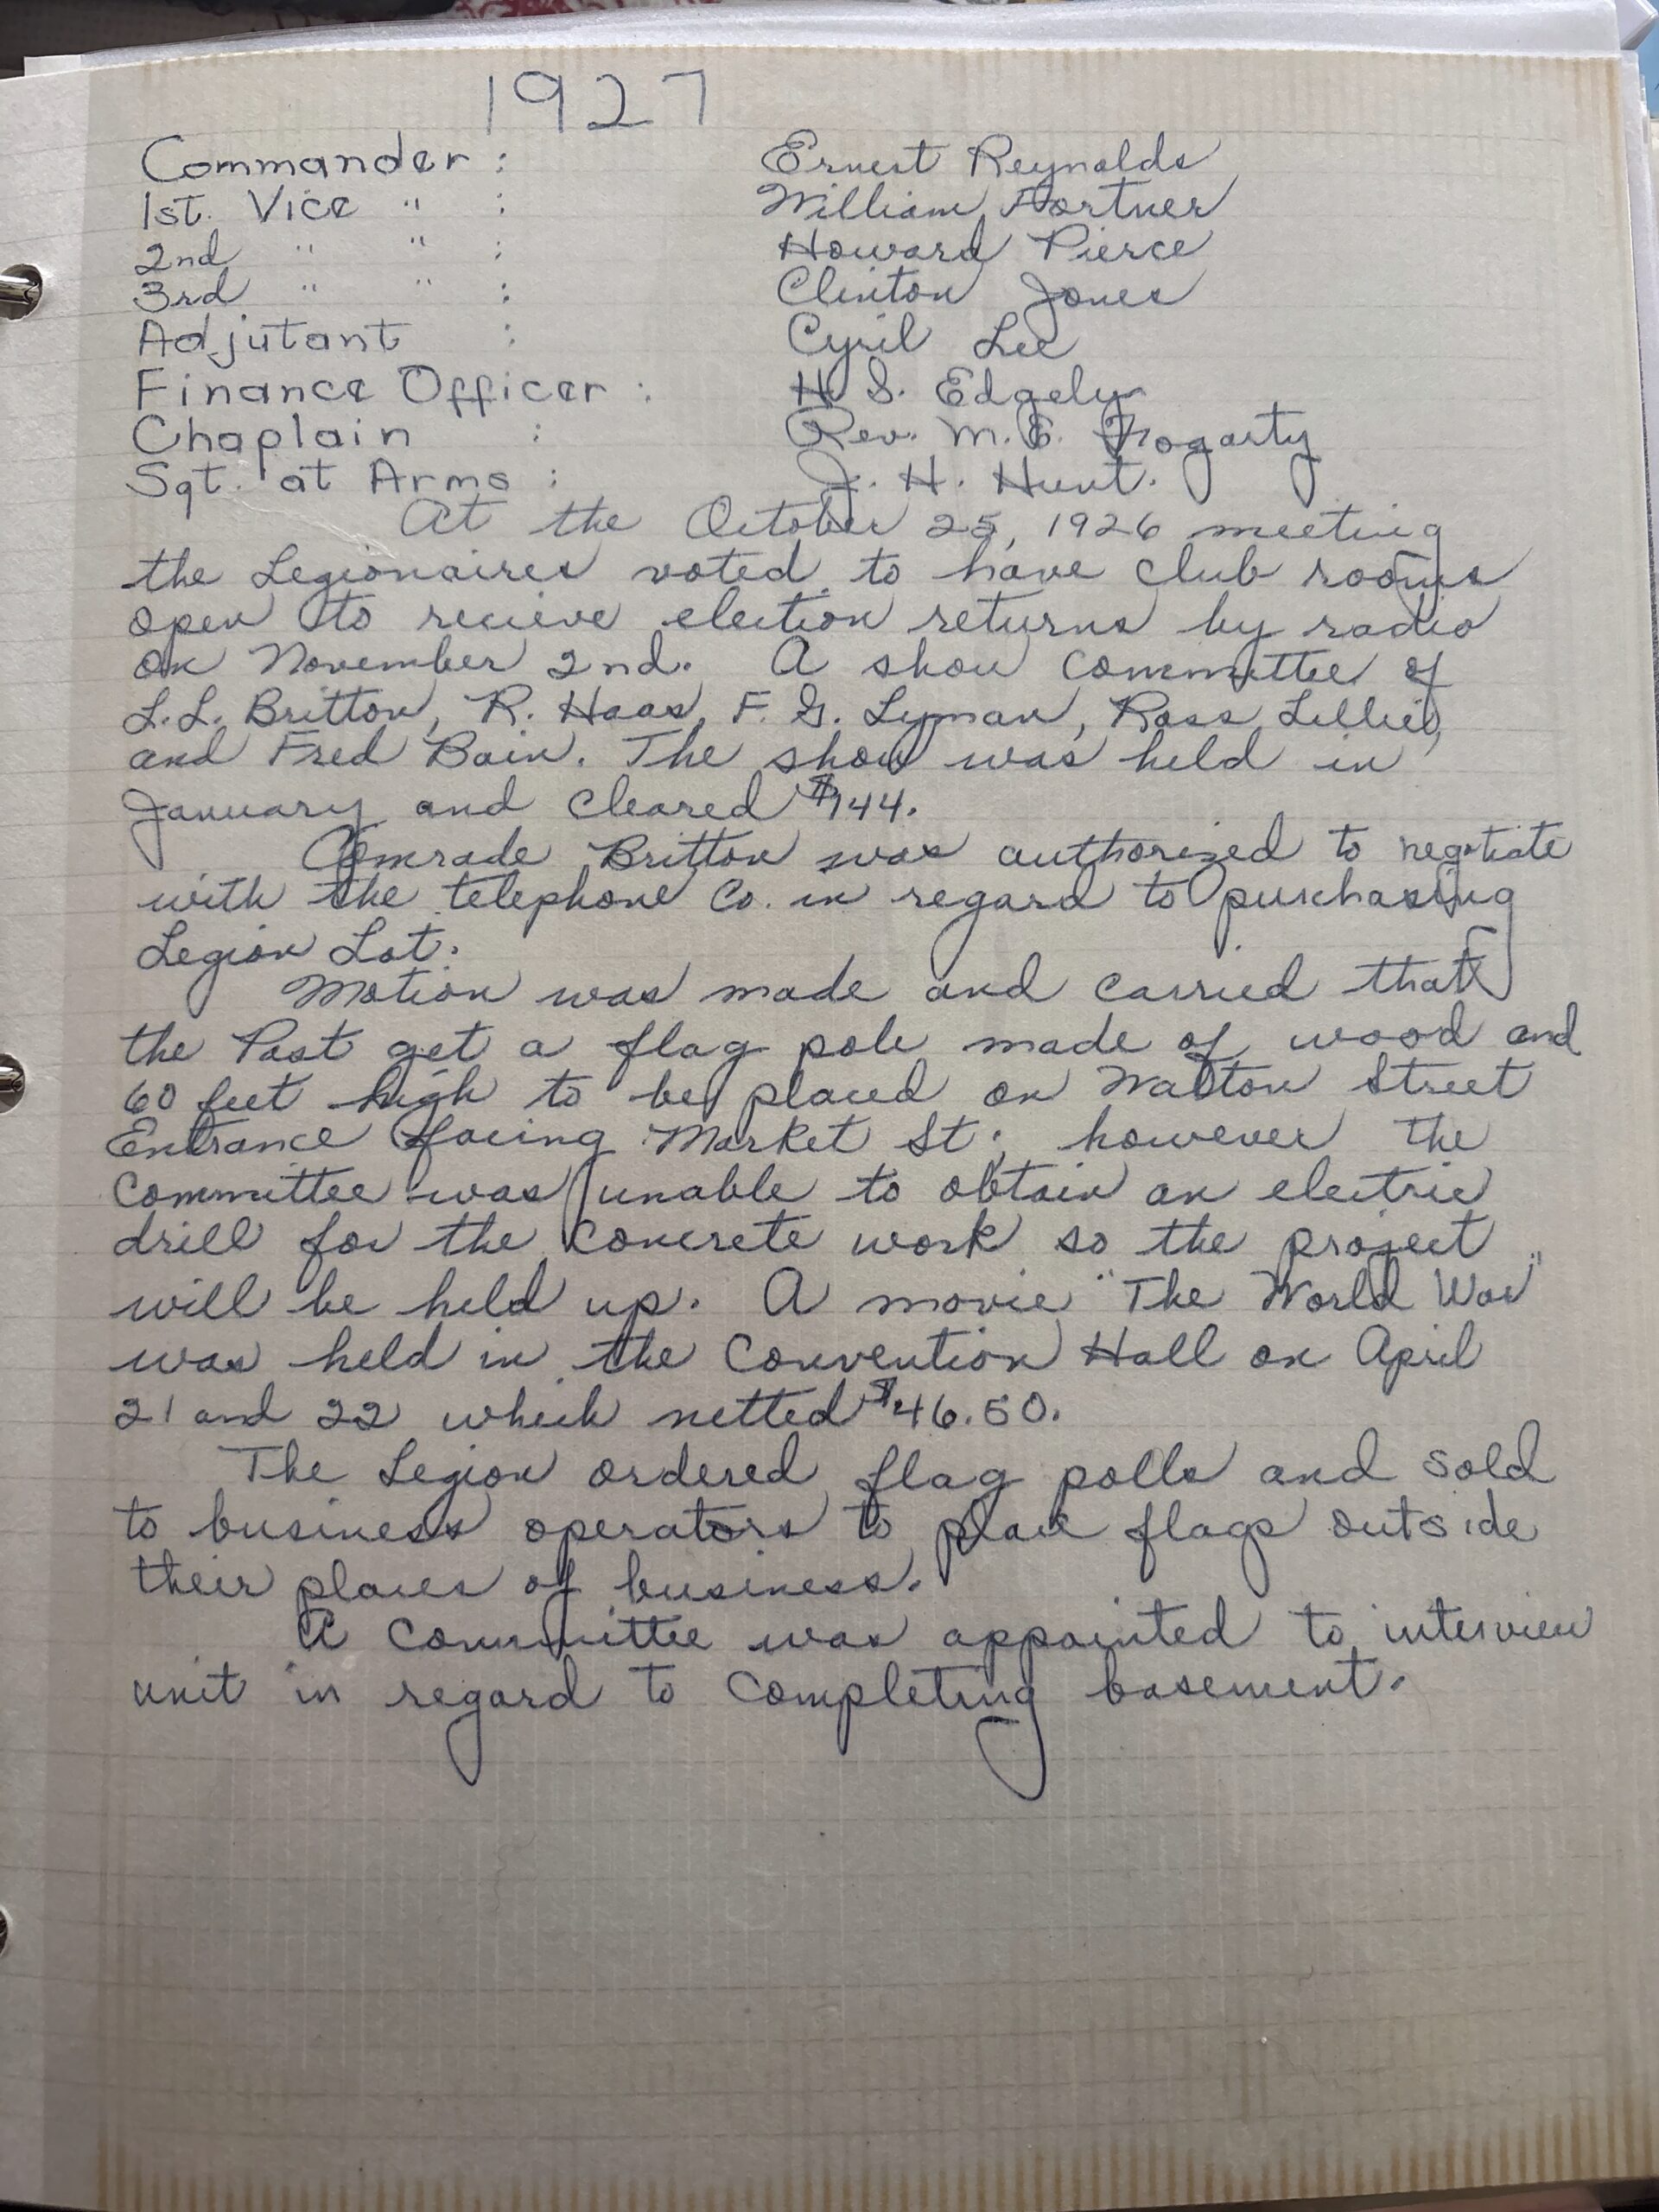 1927
Commander : Ernest Reynolds
1st. Vice " : William Fortner
2nd " " : Howard Pierce
3rd " " : Clinton Jones
Adjutant : Cyril Lee
Finance Officer : H S. Edgely
Chaplain : Rev. M. E. Fogarty
Sgt. at Arms : J. H. Hunt.
At the October 25, 1926 meeting
the Legionaires voted to have club rooms
open to recieve election returns by radio
on November 2nd. A show committee of
L.L. Britton, R. Haas, F. G. Lyman, Ross Lillie,
and Fred Bain. The show was held in
January and cleared $744.
Comrade Britton was authorized to negotiate
with the telephone Co. in regard to purchasing
Legion Lot.
Motion was made and carried that
the Post get a flag pole made of wood and
60 feet high to be placed on Walton Street
Entrance facing Market St; however the
Committee was unable to obtain an electric
drill for the concrete work so the project
will be held up. A movie "The World War"
was held in the Convention Hall on April
21 and 22 which netted $46.50.
The Legion ordered flag polls and sold
to business operators to place flags outside
their places of business.
A Committee was appointed to interview
unit in regard to completing basement.